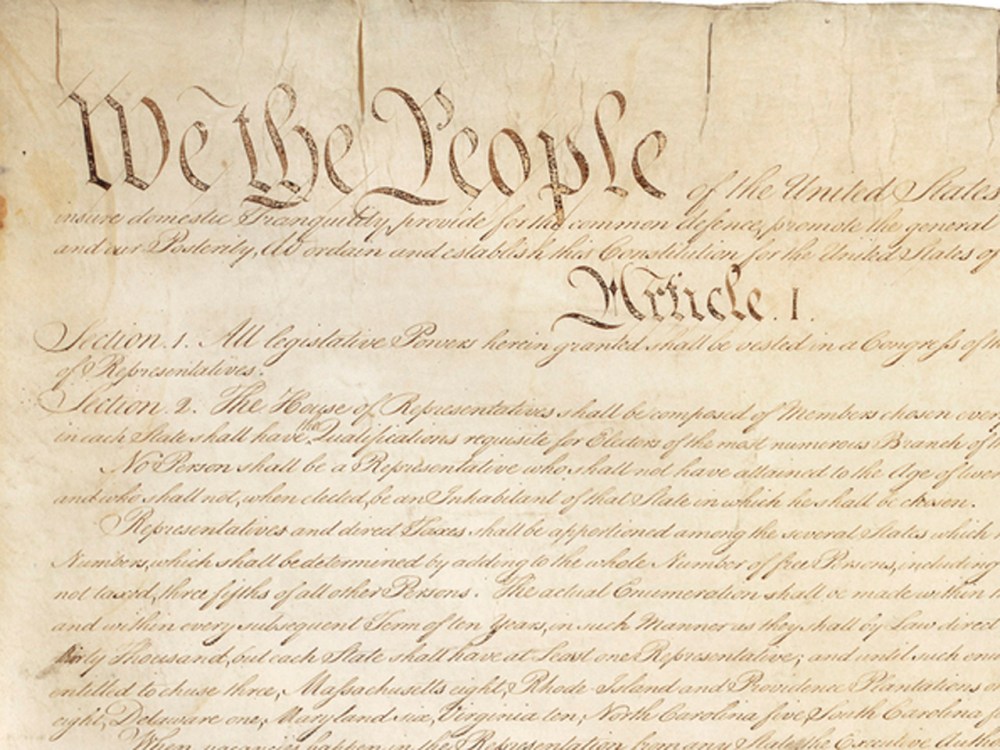 We the People of the United States
insure domestic Tranquility, provide for the common defence, promote the general
and our Posterity, do ordain and establish this Constitution for the United States of
Article. I.
Section. 1. All legislative Powers herein granted shall be vested in a Congress of
of Representatives.
Section. 2. The House of Representatives shall be composed of Members chosen
in each State shall have the Qualifications requisite for Electors of the most numerous Branch of
No Person shall be a Representative who shall not have attained to the Age of
and who shall not, when elected, be an Inhabitant of that State in which he shall be chosen.
Representatives and direct Taxes shall be apportioned among the several States which
Numbers, which shall be determined by adding to the whole Number of free Persons, including
not taxed, three fifths of all other Persons. The actual Enumeration shall be made within
and within every subsequent Term of ten Years, in such Manner as they shall by Law direct
thirty Thousand, but each State shall have at Least one Representative; and until such
entitled to chuse three, Massachusetts eight, Rhode-Island and Providence Plantations
eight, Delaware one, Maryland six, Virginia ten, North Carolina five, South Carolina
When vacancies happen in the Representation from any State, the Executive